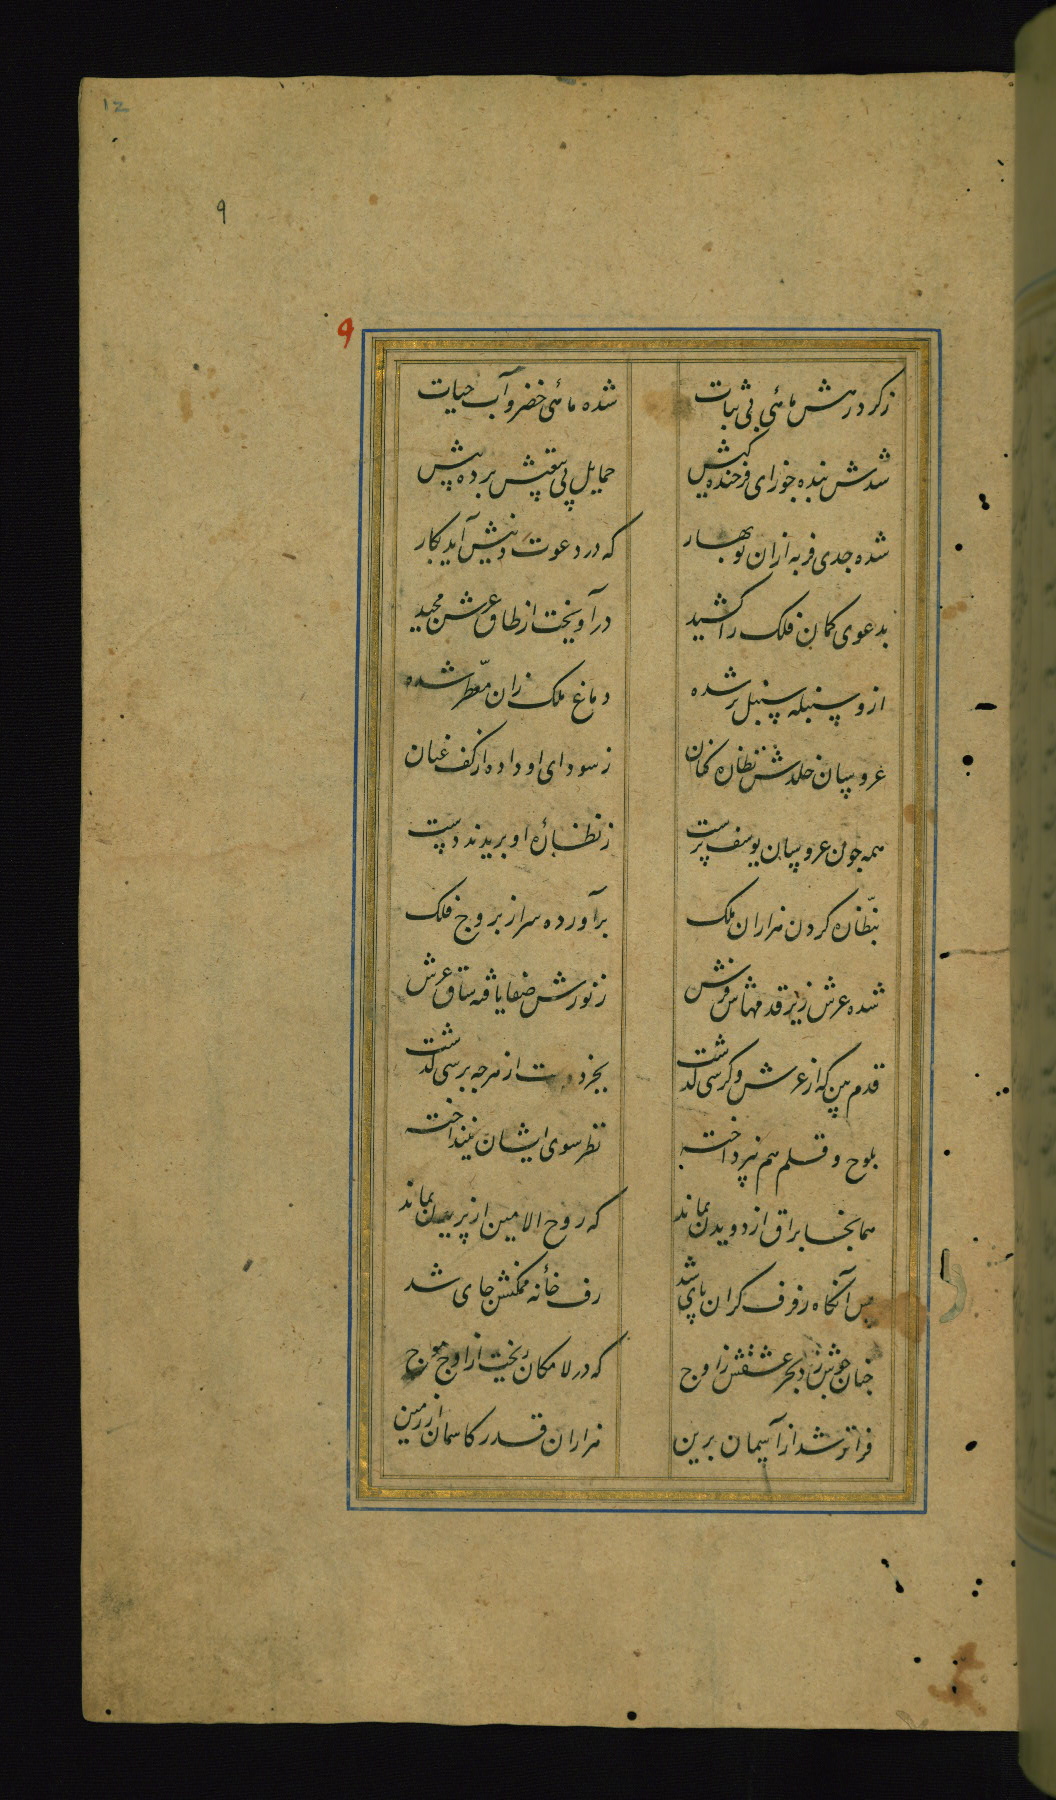 12
۹
۹
ز کرد رهش مائی بی ثبات شده مائی خضر و آب حیات
شدش بنده جوزای فرخنده کیش حمایل پی سقتش برده پیش
شده جدی فربه ازان نوبهار که در دعوت دینش آید بکار
بدعوی کمان فلک را کشید درآویخت از طاق عرش مجید
ازو سنبله سنبل تر شده دماغ ملک زان معطّر شده
عروسان خلدش نظاره کنان ز سودای او داده از کف عنان
همه چون عروسان یوسف پرست ز نظاره او بریدند دست
بنظّاره کردن هزاران ملک برآورده سر از بروج فلک
شده عرش زیر قدمهاش فرش ز نورش صفا یافته ساق عرش
قدم بین که از عرش و کرسی گذشت بجز دوست از هرچه پرسی گذشت
بلوح و قلم هم نپرداخته نظر سوی ایشان نینداخته
همانجا براق از دویدن بماند که روح الامین از پریدن بماند
پس آنگاه رفرف گران پای شد رف خانه ممکنش جای شد
چنان جوش زد بحر عشقش ز اوج که در لامکان ریخت از اوج موج
فراتر شد از آسمان برین هزاران قدر کاسمان از زمین